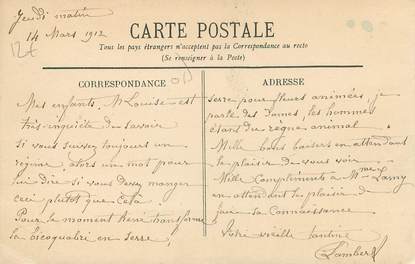 Jeudi matin
14 Mars 1912
12€
CARTE POSTALE
Tous les pays étrangers n'acceptent pas la Correspondance au recto
(Se renseigner à la Poste)
CORRESPONDANCE
Mes enfants, Mle Louise est
très inquiète de savoir
si vous suivez toujours un
régime, alors un mot pour
lui dire si vous devez manger
ceci plutôt que cela.
Pour le moment René transforme
la en serre,
ADRESSE
serre pour fleurs animées, je
parle des Dames, les hommes
étant du règne animal.
Mille bons baisers en attendant
le plaisir de vous voir
Mille Compliments à Mme Lamy
en attendant le plaisir de
faire sa Connaissance
Votre vieille tantine
Lambert